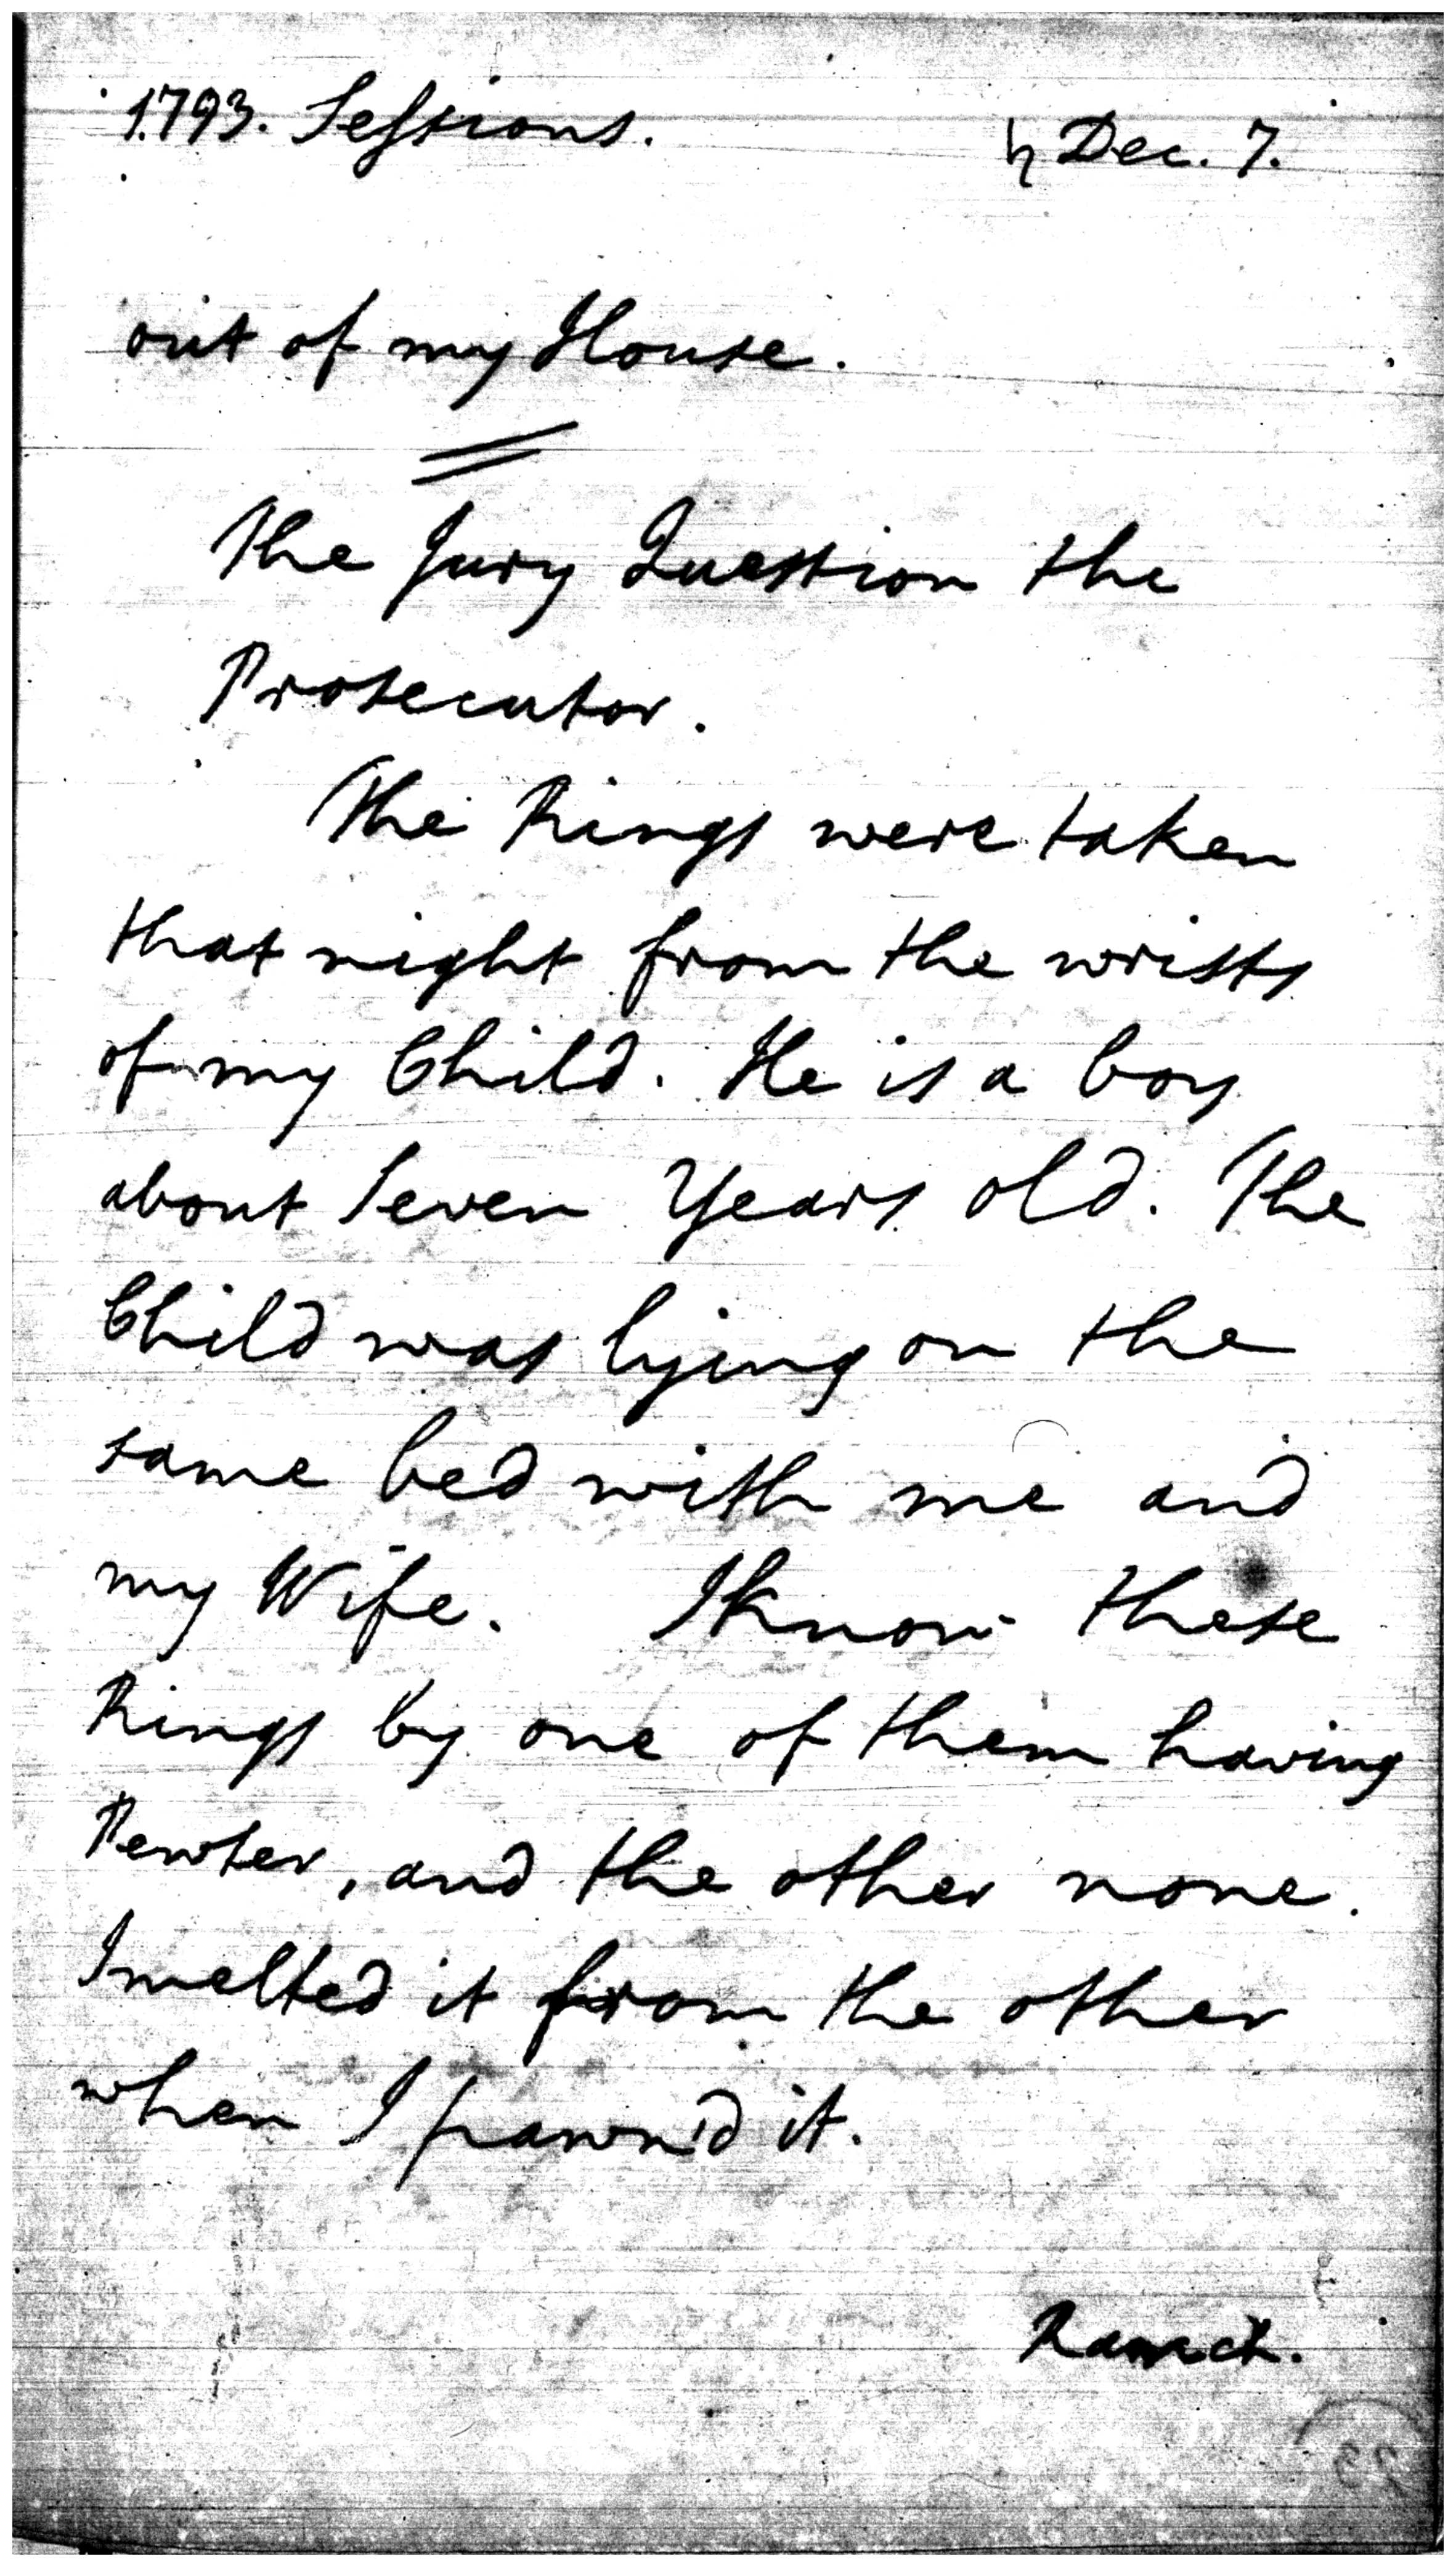 1793. Sessions. ♄ Dec. 7.
out of my House.
The Jury Question the
Prosecutor.
The Rings were taken
that night from the wrists
of my Child. He is a boy
about Seven Years old. The
Child was lying on the
same bed with me and
my Wife. I know these
Rings by one of them having
Pewter, and the other none.
I melted it from the other
when I pawn'd it.